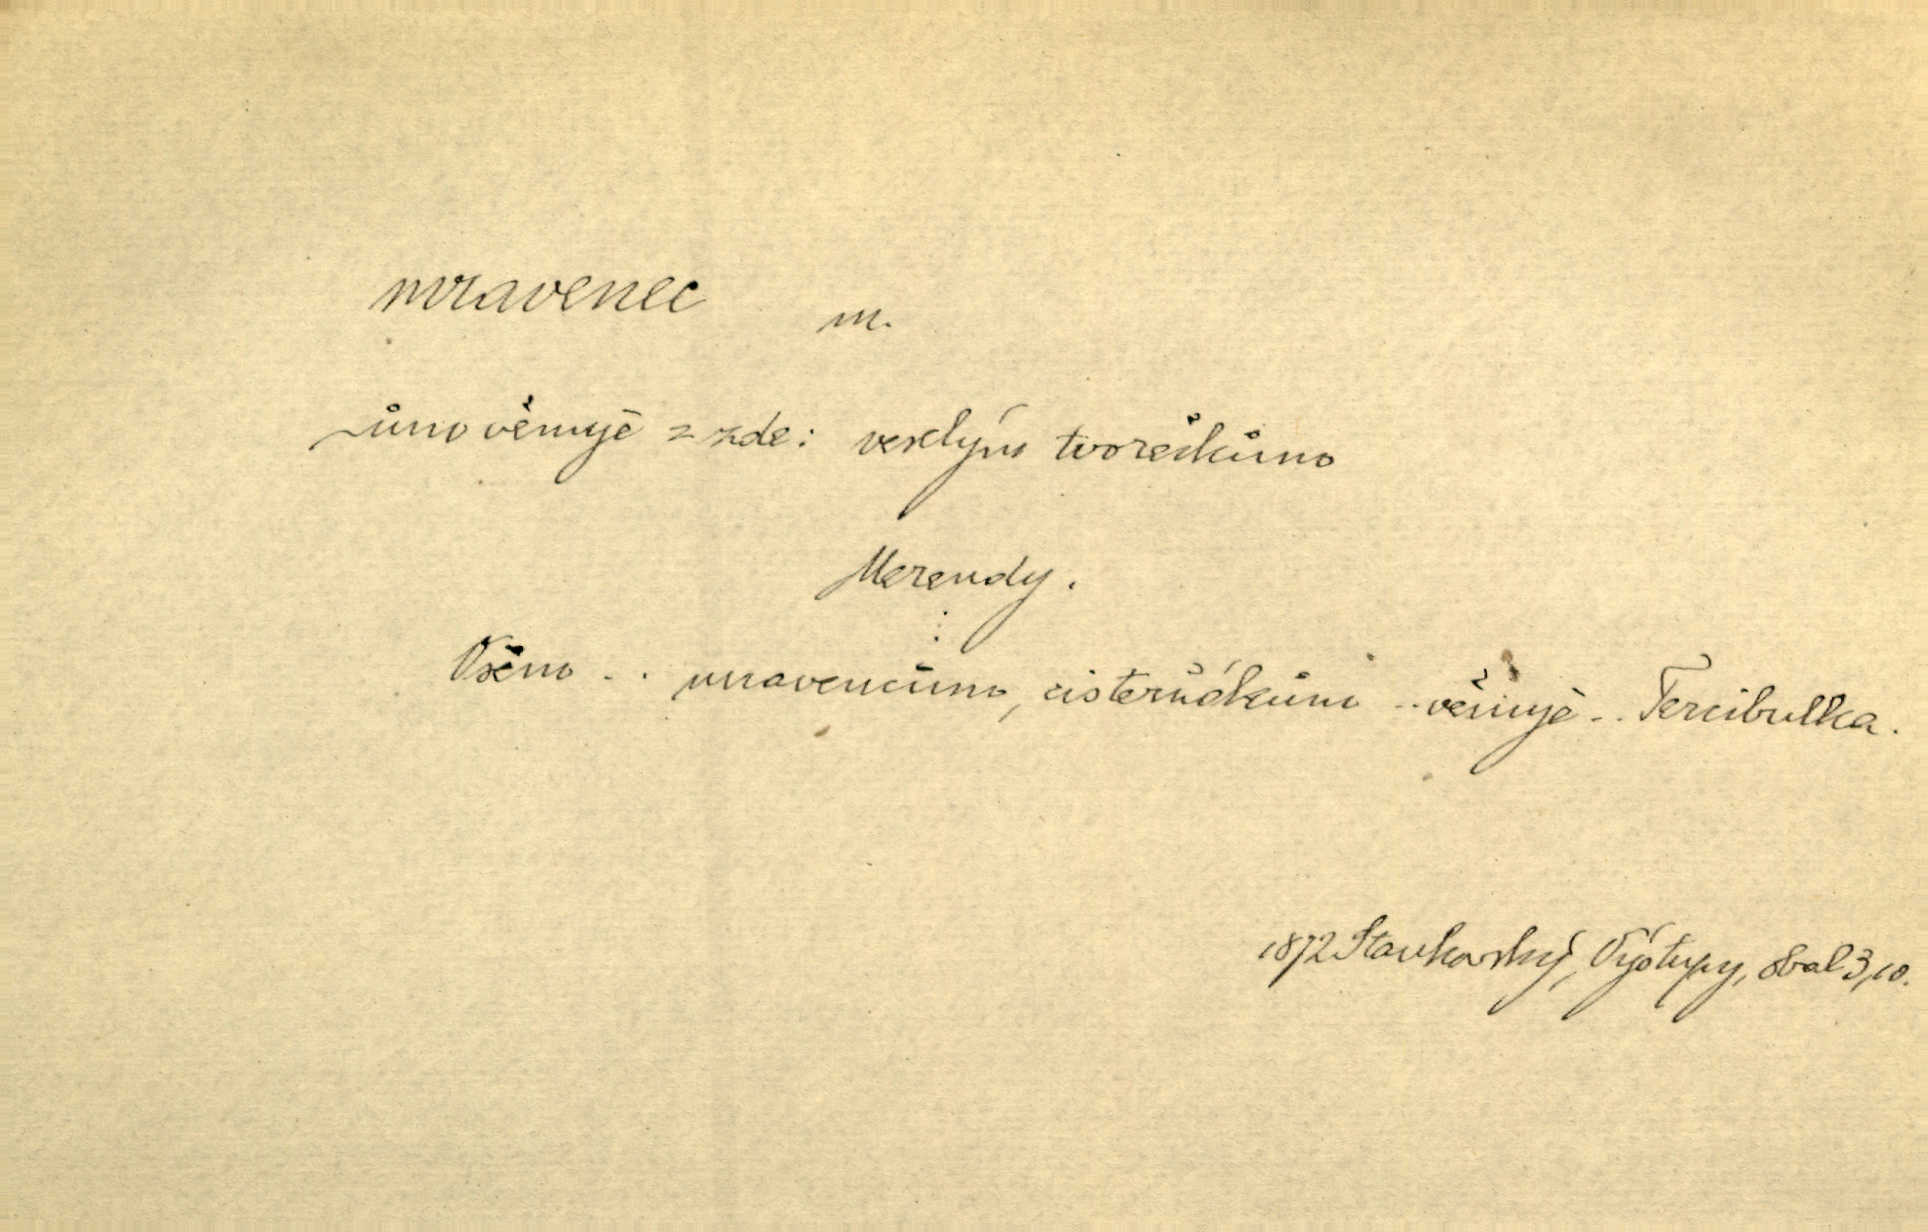 mravenec m.
~ům věnuje = zde: veselým tvorečkům
Merendy.
Všem .. mravencům, cisterňákům .. věnuje .. Tercibulka.
1872 Stankovský, Výstupy, obal 3, 10.